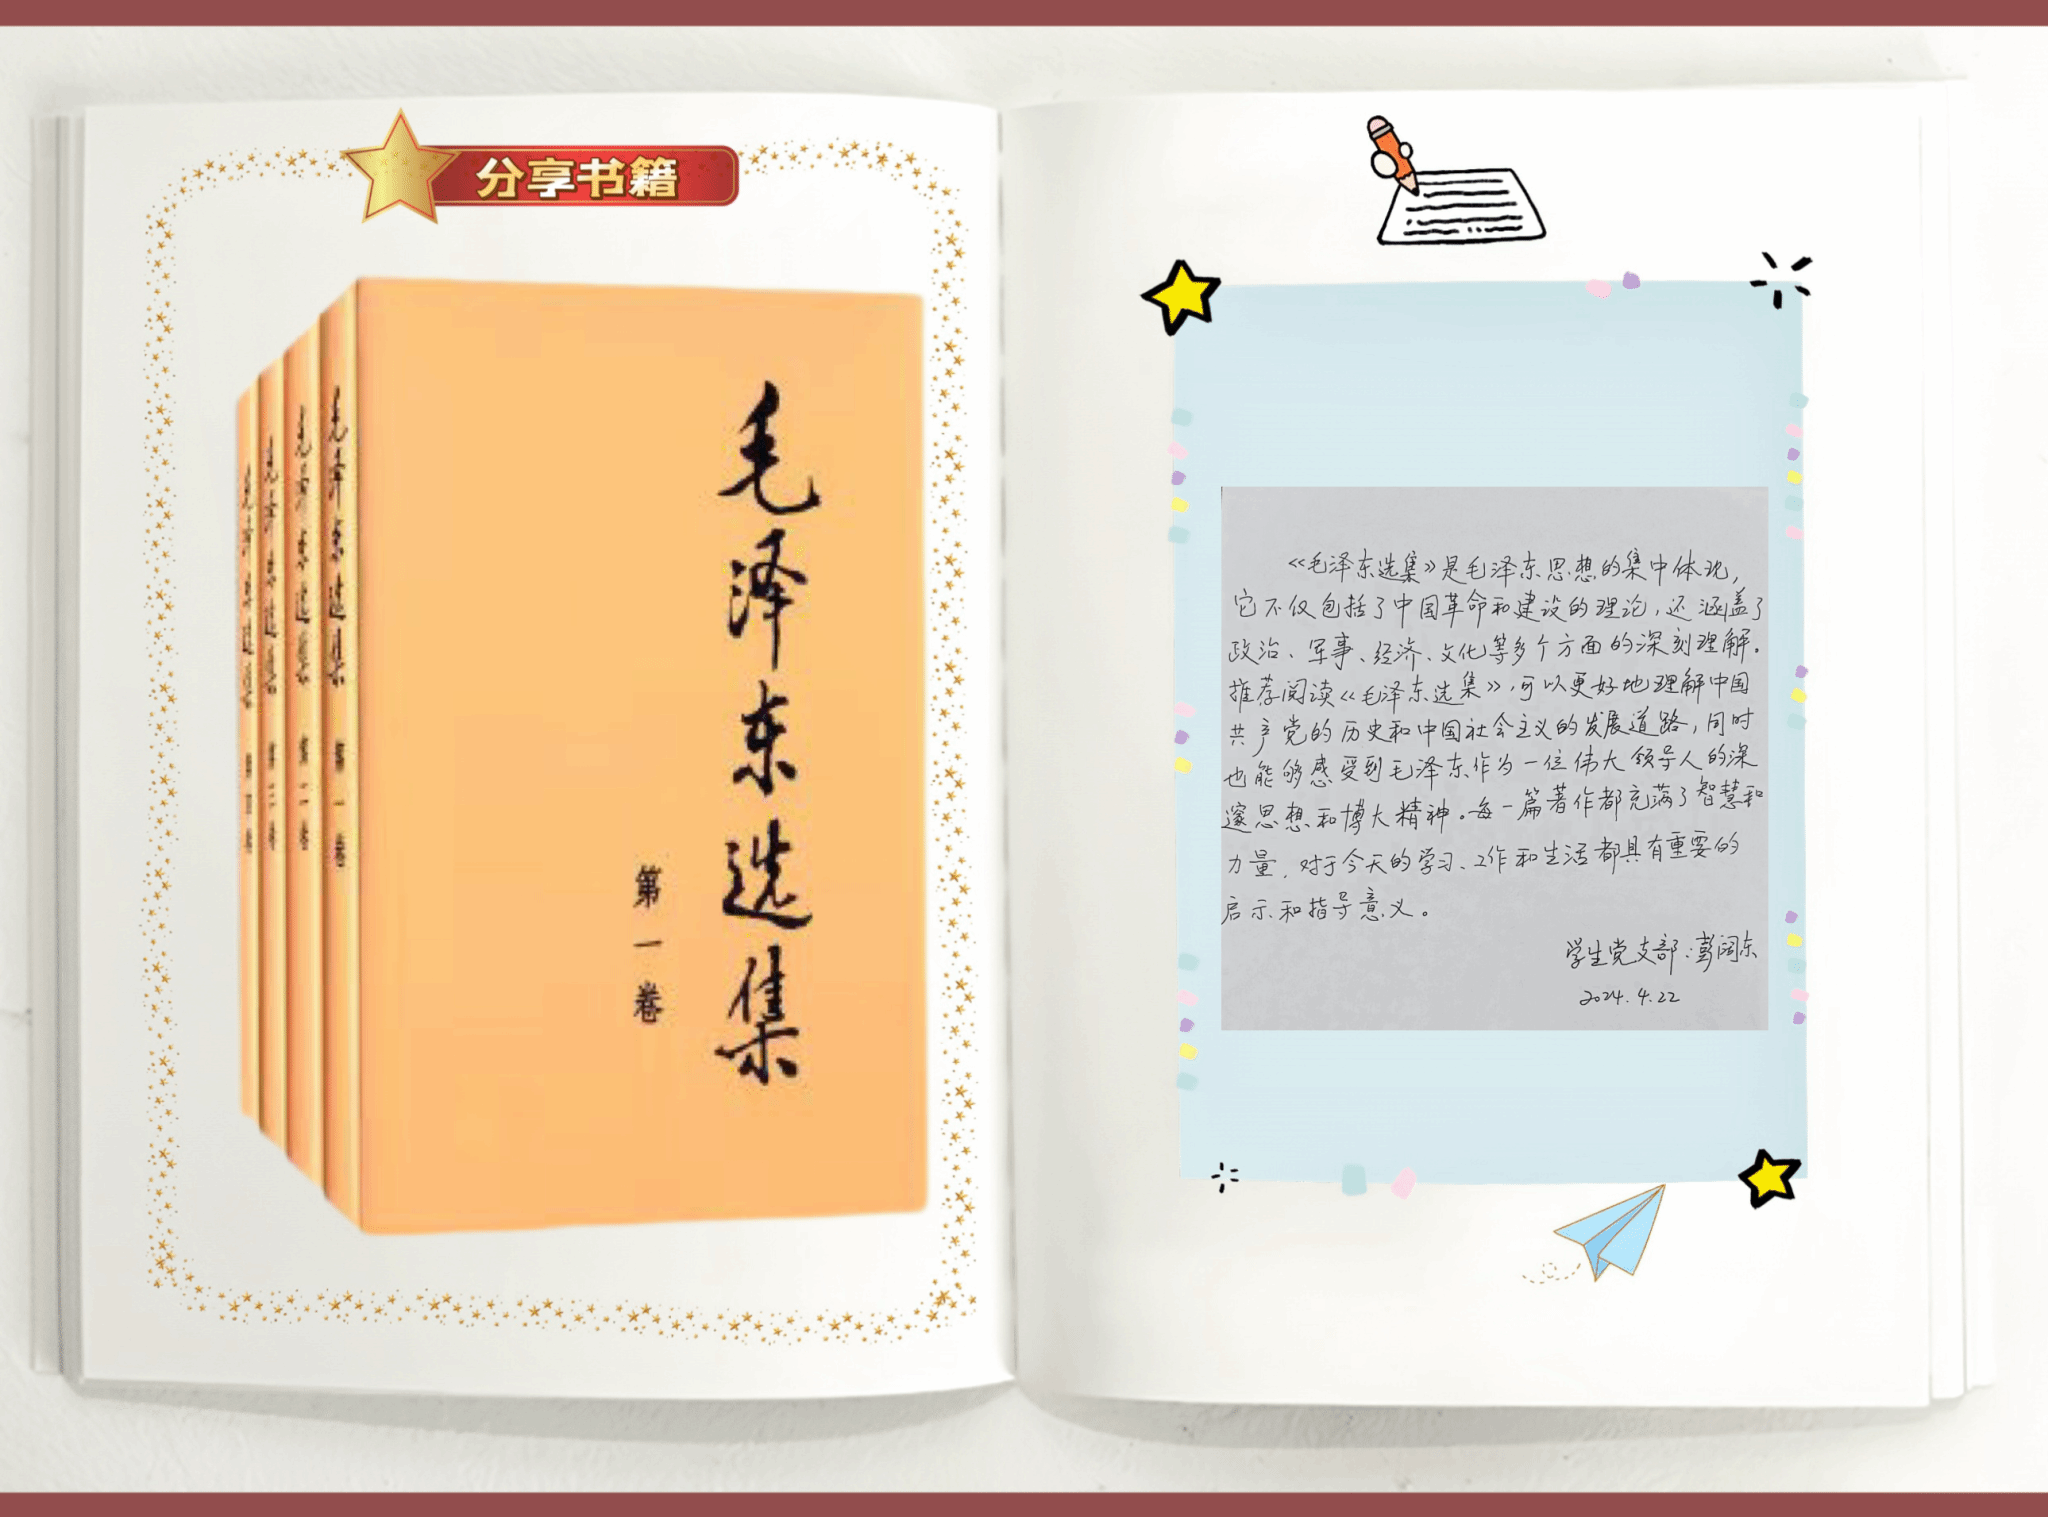 分享书籍
毛泽东选集
第一卷
毛泽东选集 第一卷
毛泽东选集 第二卷
毛泽东选集 第三卷
毛泽东选集 第四卷
《毛泽东选集》是毛泽东思想的集中体现，
它不仅包括了中国革命和建设的理论，还涵盖了
政治、军事、经济、文化等多个方面的深刻理解。
推荐阅读《毛泽东选集》，可以更好地理解中国
共产党的历史和中国社会主义的发展道路，同时
也能够感受到毛泽东作为一位伟大领导人的深
邃思想和博大精神。每一篇著作都充满了智慧和
力量，对于今天的学习、工作和生活都具有重要的
启示和指导意义。
学生党支部：彭阔东
2024.4.22